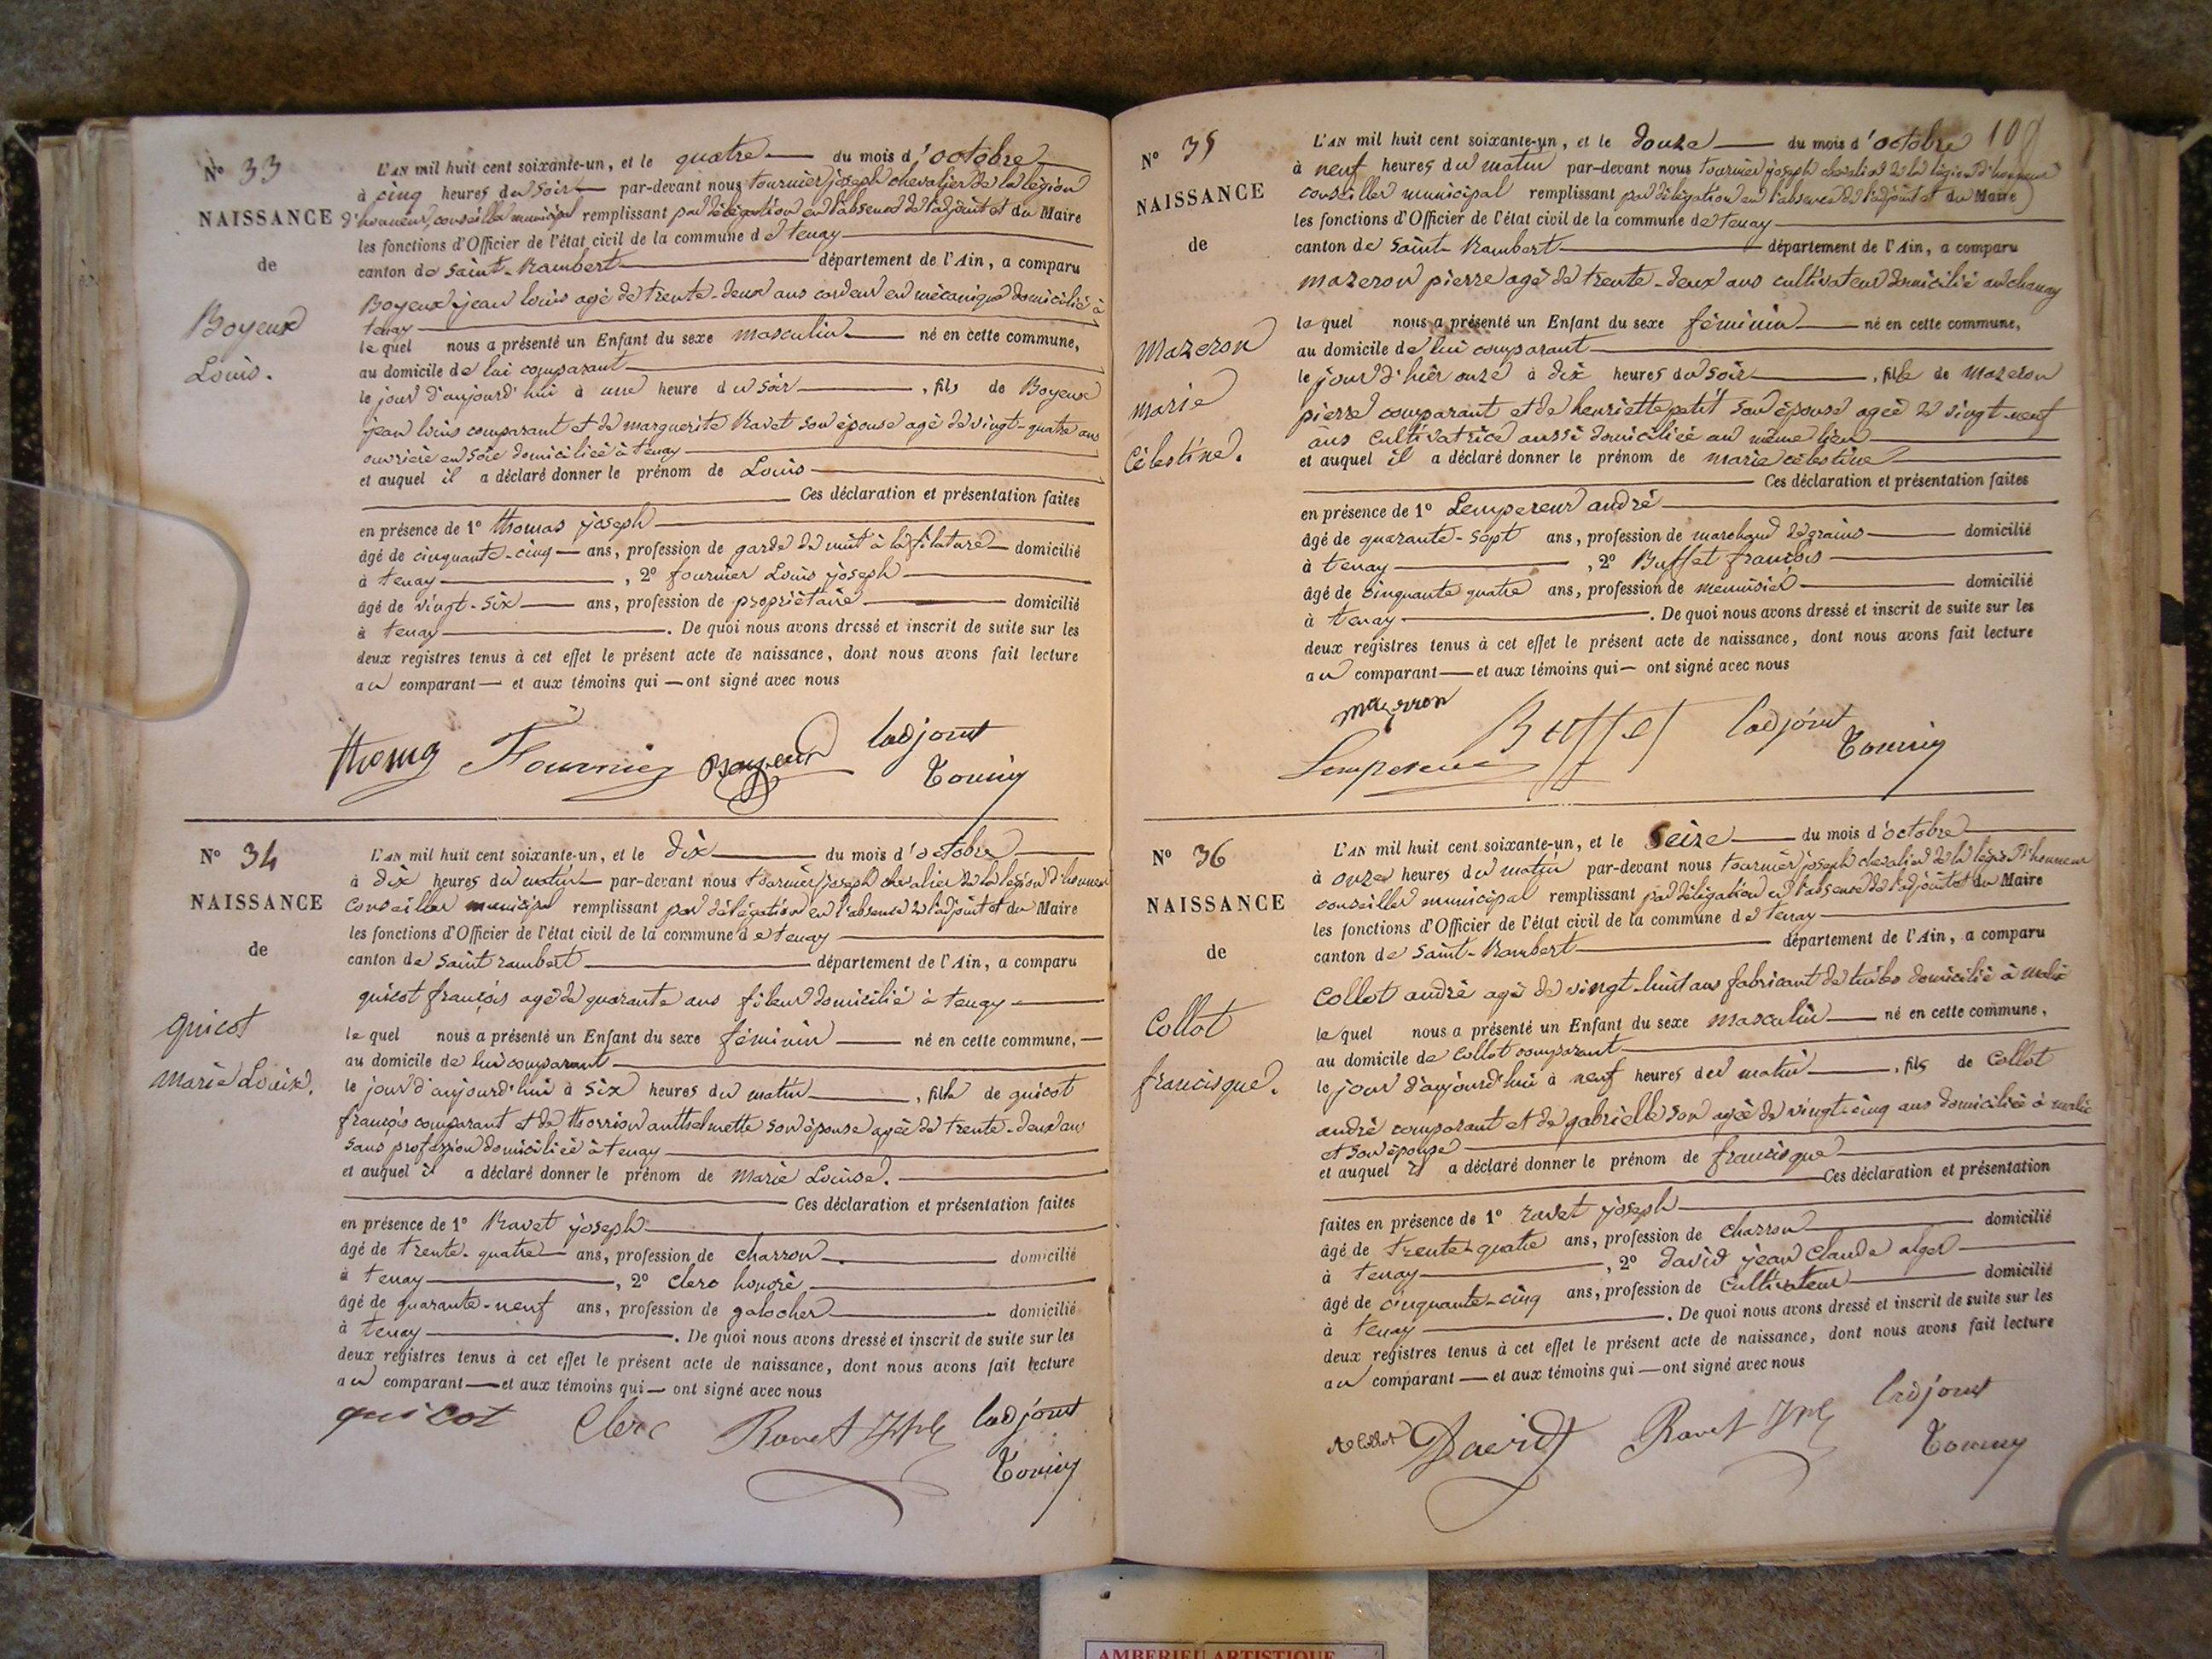 N° 33
NAISSANCE
de
Boyeux
Louis.
L'AN mil huit cent soixante-un, et le quatre du mois d'octobre
à cinq heures du soir par-devant nous tournier joseph chevalier de la légion
d'honneur, conseiller municipal remplissant par délégation en l'absence de l'adjoint et du Maire
les fonctions d'Officier de l'état civil de la commune de tenay
canton de Saint-Rambert département de l'Ain, a comparu
Boyeux jean louis agé de trente-deux ans cardeur en mécanique domicilié à
tenay
lequel nous a présenté un Enfant du sexe masculin né en cette commune,
au domicile de lui comparant
le jour d'aujourd'hui à une heure du soir, fils de Boyeux
jean louis comparant et de marguerite Ravet son épouse agé de vingt-quatre ans
ouvrière en soie domiciliée à tenay
et auquel il a déclaré donner le prénom de Louis
Ces déclaration et présentation faites
en présence de 1° thomas joseph
âgé de cinquante-cinq ans, profession de garde de nuit à la filature domicilié
à tenay, 2° fournier Louis joseph
âgé de vingt-six ans, profession de propriétaire domicilié
à tenay. De quoi nous avons dressé et inscrit de suite sur les
deux registres tenus à cet effet le présent acte de naissance, dont nous avons fait lecture
au comparant et aux témoins qui ont signé avec nous
thomas Fournier Boyeux ladjoint
N° 34
NAISSANCE
de
guicot
Marie Louise.
L'AN mil huit cent soixante-un, et le dix du mois d'octobre
à dix heures du matin par-devant nous tournier joseph chevalier de la légion d'honneur
conseiller municipal remplissant par délégation en l'absence de l'adjoint et du Maire
les fonctions d'Officier de l'état civil de la commune de tenay
canton de Saint rambert département de l'Ain, a comparu
guicot françois agé de quarante ans fileur domicilié à tenay
lequel nous a présenté un Enfant du sexe féminin né en cette commune,
au domicile de lui comparant
le jour d'aujourd'hui à six heures du matin, fille de guicot
françois comparant et de thorrion anthelmette son épouse agée de trente-deux ans
sans profession domiciliée à tenay
et auquel il a déclaré donner le prénom de Marie Louise.
Ces déclaration et présentation faites
en présence de 1° Ravet joseph
âgé de trente-quatre ans, profession de charron domicilié
à tenay, 2° clerc honoré
âgé de quarante-neuf ans, profession de galocher domicilié
à tenay. De quoi nous avons dressé et inscrit de suite sur les
deux registres tenus à cet effet le présent acte de naissance, dont nous avons fait lecture
au comparant et aux témoins qui ont signé avec nous
guicot Clerc Ravet Jph ladjoint
109
N° 35
NAISSANCE
de
Mazeron
marie
Célestine.
L'AN mil huit cent soixante-un, et le douze du mois d'octobre
à neuf heures du matin par-devant nous tournier joseph chevalier de la légion d'honneur
conseiller municipal remplissant par délégation en l'absence de l'adjoint et du Maire
les fonctions d'Officier de l'état civil de la commune de tenay
canton de Saint-Rambert département de l'Ain, a comparu
mazeron pierre agé de trente-deux ans cultivateur domicilié au chanay
lequel nous a présenté un Enfant du sexe féminin né en cette commune,
au domicile de lui comparant
le jour d'hier onze à dix heures du soir, fille de Mazeron
pierre comparant et de henriette petit son épouse agée de vingt-neuf
ans cultivatrice aussi domiciliée au même lieu
et auquel il a déclaré donner le prénom de marie célestine
Ces déclaration et présentation faites
en présence de 1° Lempereur andré
âgé de quarante-sept ans, profession de marchand de grains domicilié
à tenay, 2° Buffet françois
âgé de cinquante quatre ans, profession de menuisier domicilié
à tenay. De quoi nous avons dressé et inscrit de suite sur les
deux registres tenus à cet effet le présent acte de naissance, dont nous avons fait lecture
au comparant et aux témoins qui ont signé avec nous
mazeron Buffet ladjoint
Lempereur
N° 36
NAISSANCE
de
Collot
francisque.
L'AN mil huit cent soixante-un, et le Seize du mois d'octobre
à onze heures du matin par-devant nous tournier joseph chevalier de la légion d'honneur
conseiller municipal remplissant par délégation en l'absence de l'adjoint et du Maire
les fonctions d'Officier de l'état civil de la commune de tenay
canton de Saint-Rambert département de l'Ain, a comparu
Collot andré agé de vingt-huit ans fabricant de tuiles domicilié à malix
lequel nous a présenté un Enfant du sexe masculin né en cette commune,
au domicile de Collot comparant
le jour d'aujourd'hui à neuf heures du matin, fils de Collot
andré comparant et de gabrielle son agée de vingt-cinq ans domiciliée à malix
et son épouse
et auquel il a déclaré donner le prénom de francisque
Ces déclaration et présentation
faites en présence de 1° ravet joseph
âgé de trente-quatre ans, profession de charron domicilié
à tenay, 2° david jean claude alger
âgé de cinquante-cinq ans, profession de cultivateur domicilié
à tenay. De quoi nous avons dressé et inscrit de suite sur les
deux registres tenus à cet effet le présent acte de naissance, dont nous avons fait lecture
au comparant et aux témoins qui ont signé avec nous
David Ravet Jph ladjoint
AMBERIEU ARTISTIQUE